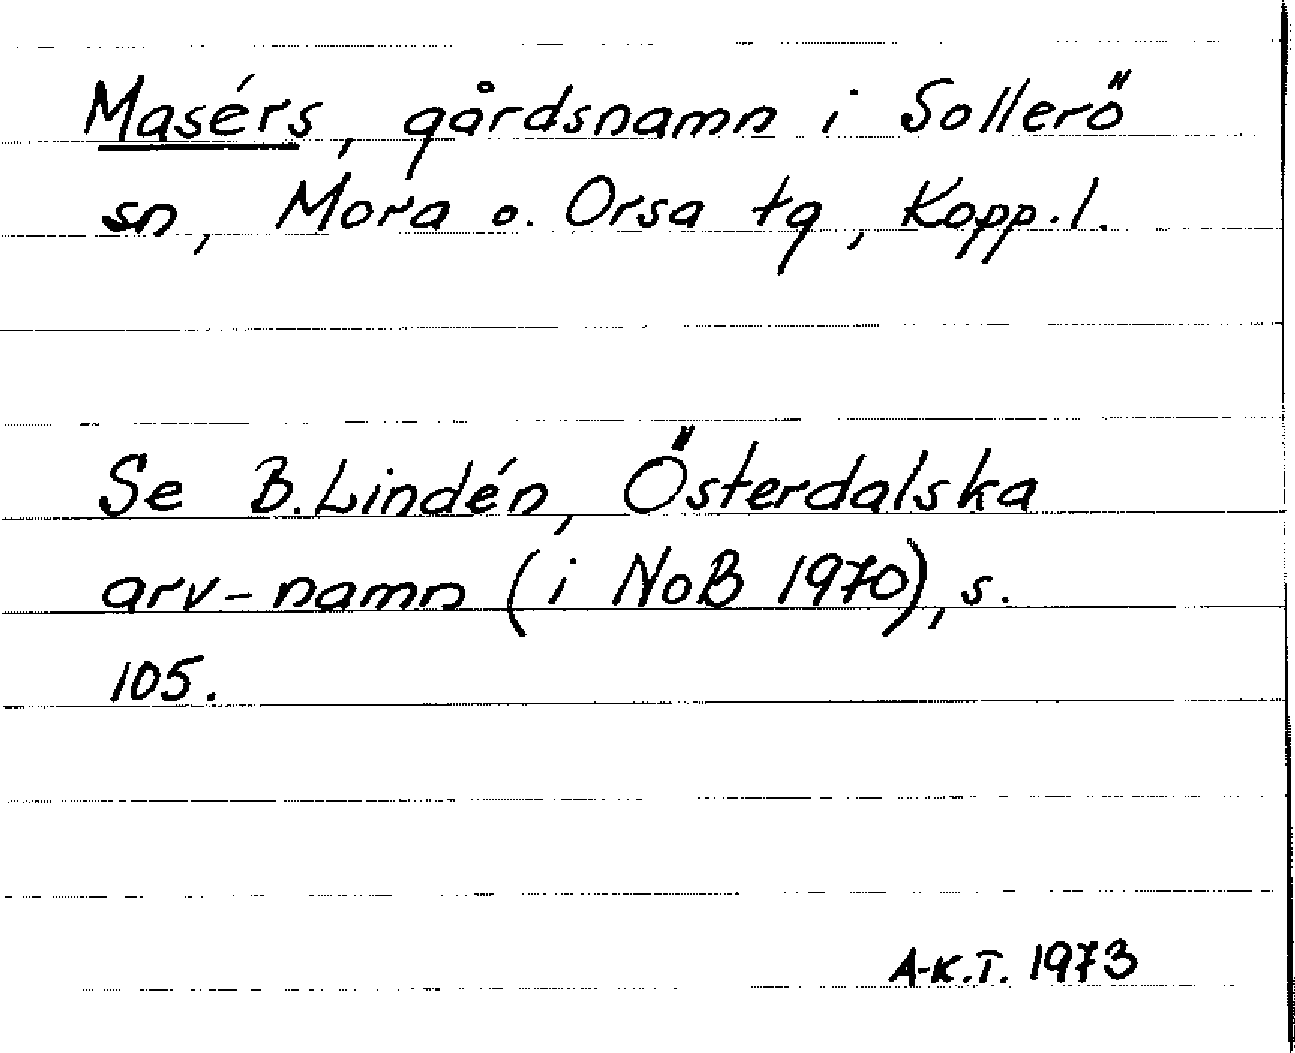 Masérs, gårdsnamn i Sollerö
sn, Mora o. Orsa tg, Kopp. l.
Se B. Lindén, Österdalska
arv-namn (i NoB 1970), s.
105.
A-K.T. 1973